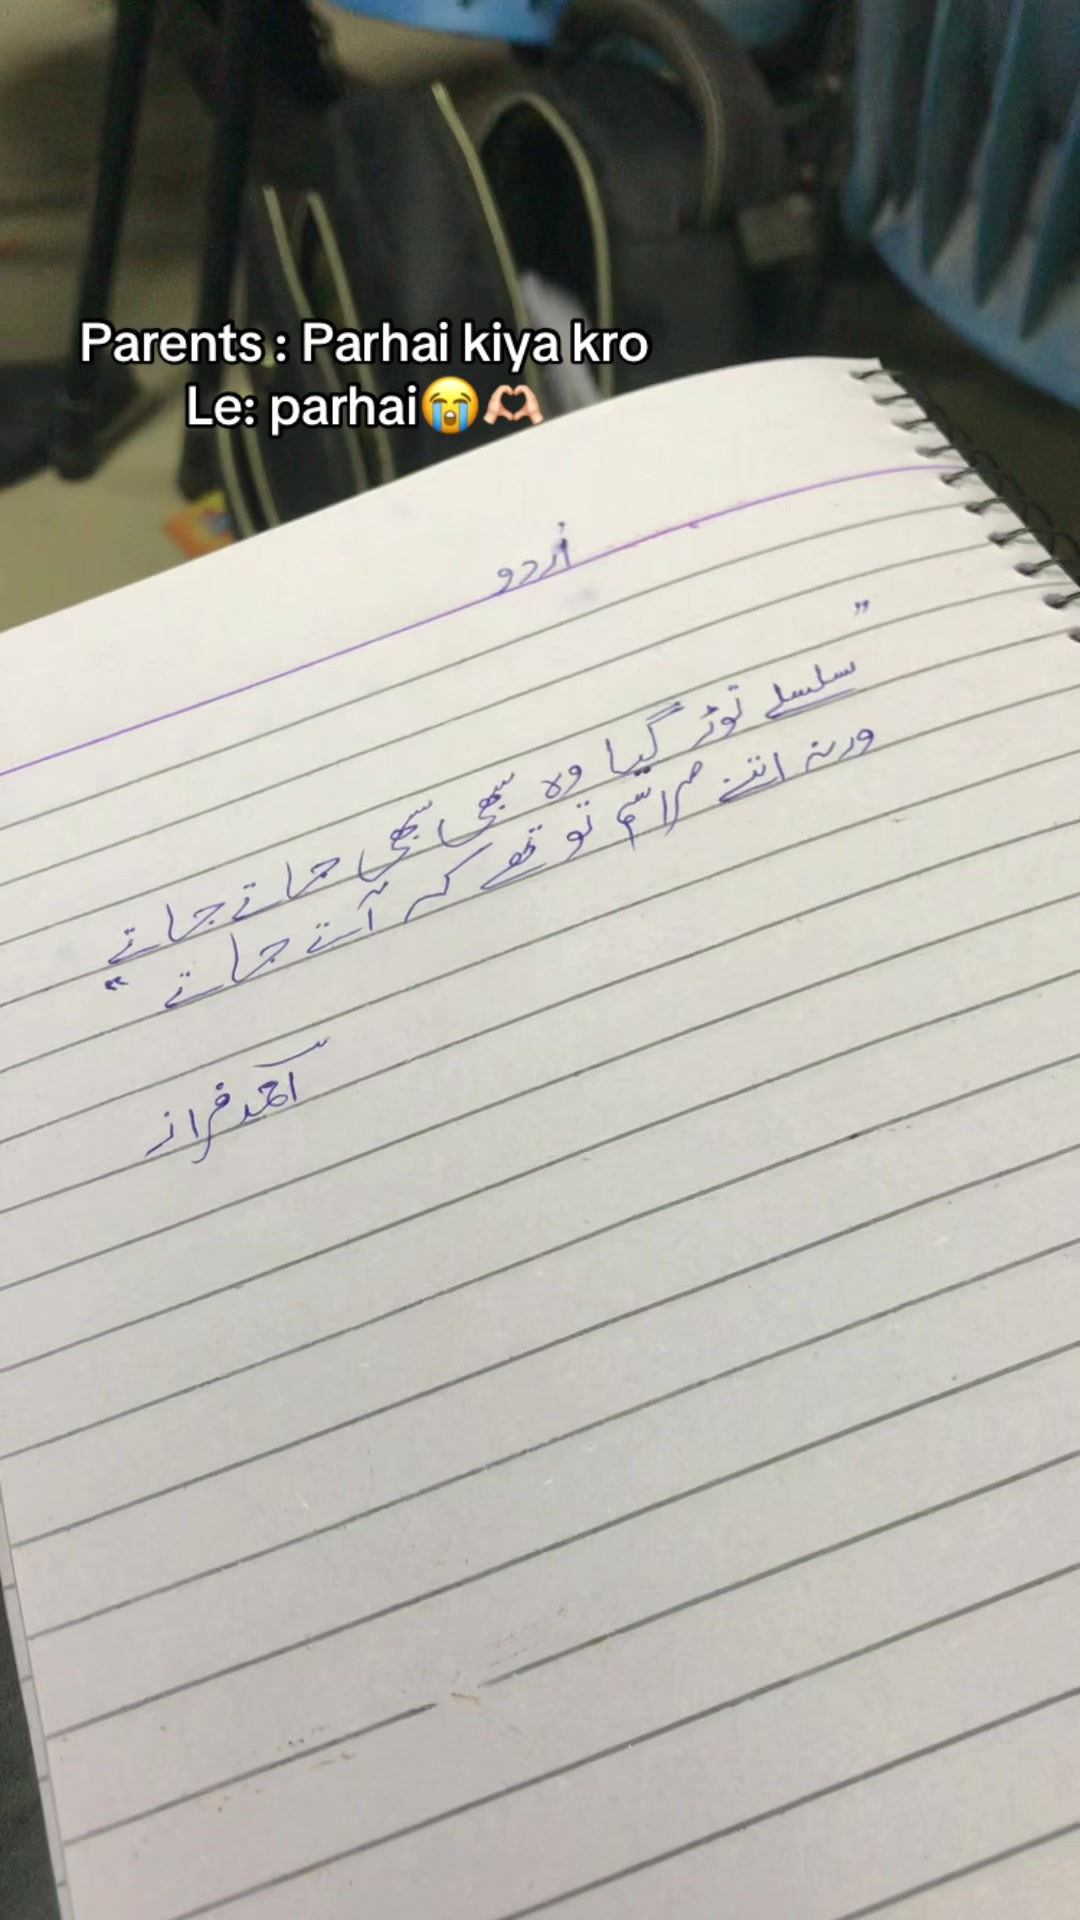 Parents : Parhai kiya kro
Le: parhai😭🫶🏻
اُردو
"
سلسلے توڑ گیا وہ سبھی سبھی جاتے جاتے
ورنہ اتنے مراسم تو تھے کہ آتے جاتے "
احمد فراز